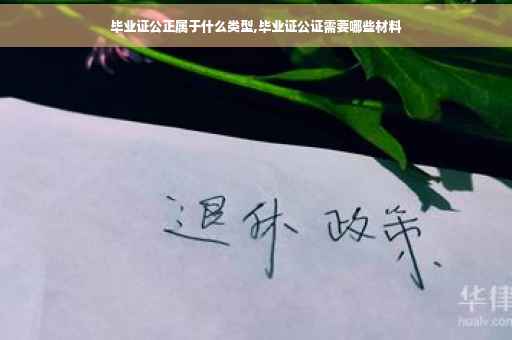 毕业证公正属于什么类型,毕业证公证需要哪些材料
退休 政策
华律
hualv.com